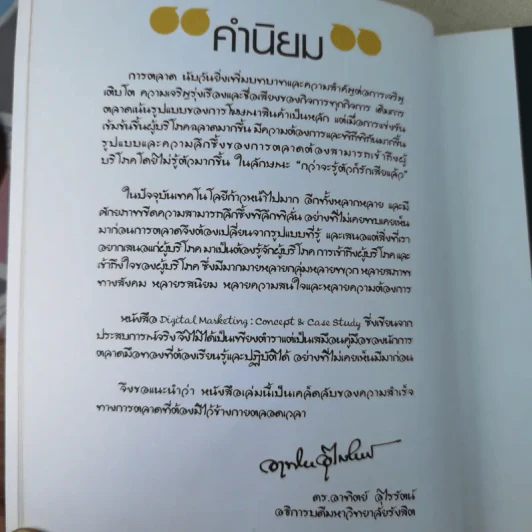 คำนิยม
การตลาด นับวันยิ่งเพิ่มบทบาทและความสำคัญต่อการเจริญ
เติบโต ความเจริญรุ่งเรืองและชื่อเสียงของกิจการทุกกิจการ เดิมการ
ตลาดเน้นรูปแบบของการโฆษณาสินค้าเป็นหลัก แต่เมื่อการแข่งขัน
เข้มข้นขึ้นผู้บริโภคฉลาดมากขึ้น มีความต้องการและพิถีพิถันมากขึ้น
รูปแบบและความลึกซึ้งของการตลาดต้องสามารถเข้าถึงผู้
บริโภคโดยไม่รู้ตัวมากขึ้น ในลักษณะ "กว่าจะรู้ตัวก็รักเสียแล้ว"
ในปัจจุบันเทคโนโลยีก้าวหน้าไปมาก อีกทั้งหลากหลาย และมี
ศักยภาพขีดความสามารถลึกซึ้งพิลึกพิลั่น อย่างที่ไม่เคยพบเคยเห็น
มาก่อนการตลาดจึงต้องเปลี่ยนจากรูปแบบที่รู้ และเสนอแต่สิ่งที่เรา
อยากเสนอแก่ผู้บริโภค มาเป็นต้องรู้จักผู้บริโภค การเข้าถึงผู้บริโภค และ
เข้าถึงใจของผู้บริโภค ซึ่งมีมากมายหลายกลุ่มหลายพวก หลายสภาพ
ทางสังคม หลายรสนิยม หลายความสนใจและหลายความต้องการ
หนังสือ Digital Marketing : Concept & Case Study ซึ่งเขียนจาก
ประสบการณ์จริง จึงไม่ได้เป็นเพียงตำราแต่เป็นเสมือนคู่มือของนักการ
ตลาดมือทองที่ต้องเรียนรู้และปฏิบัติได้ อย่างที่ไม่เคยเห็นมีมาก่อน
จึงขอแนะนำว่า หนังสือเล่มนี้เป็นเคล็ดลับของความสำเร็จ
ทางการตลาดที่ต้องมีไว้ข้างกายตลอดเวลา
ดร.อาทิตย์ อุไรรัตน์
อธิการบดีมหาวิทยาลัยรังสิต